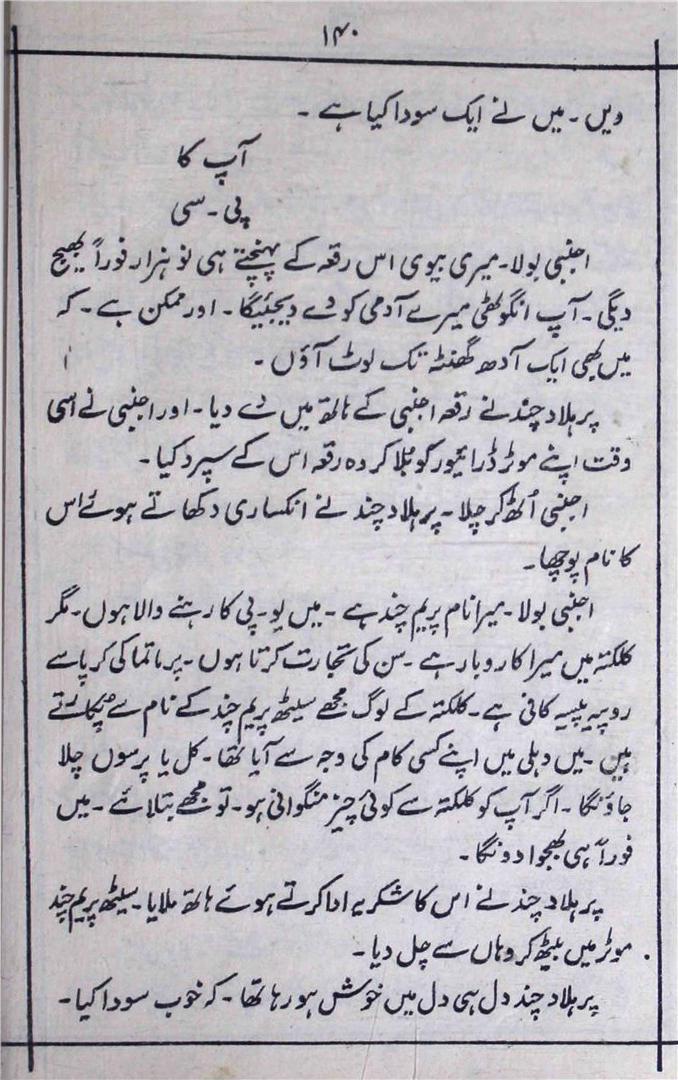 ۱۴۰
ویں ۔ میں نے ایک سودا کیا ہے ۔
آپ کا
پی ۔ سی
اجنبی بولا ۔ میری بیوی اس رقعہ کے پہنچتے ہی نو ہزار فوراً بھیج
دیگی ۔ آپ انگوٹھی میرے آدمی کو دے دیجئیگا ۔ اور ممکن ہے ۔ کہ
میں بھی ایک آدھ گھنٹہ تک لوٹ آؤں ۔
پرہلاد چند نے رقعہ اجنبی کے ہاتھ میں دے دیا ۔ اور اجنبی نے اسی
وقت اپنے موٹر ڈرائیور کو بُلا کر وہ رقعہ اس کے سپرد کیا ۔
اجنبی اُٹھ کر چلا ۔ پرہلاد چند نے انکساری دکھاتے ہوئے اس
کا نام پوچھا ۔
اجنبی بولا ۔ میرا نام پریم چند ہے ۔ میں یو ۔ پی کا رہنے والا ہوں ۔ مگر
کلکتہ میں میرا کاروبار ہے ۔ سن کی تجارت کرتا ہوں ۔ پرماتما کی کرپا سے
روپیہ پیسہ کافی ہے ۔ کلکتہ کے لوگ مجھے سیٹھ پریم چند کے نام سے پہچانتے
ہیں ۔ میں دہلی میں اپنے کسی کام کی وجہ سے آیا تھا ۔ کل یا پرسوں چلا
جاؤنگا ۔ اگر آپ کو کلکتہ سے کوئی چیز منگوانی ہو ۔ تو مجھے بتلائے ۔ میں
فوراً ہی بھجوا دونگا ۔
پرہلاد چند نے اس کا شکریہ ادا کرتے ہوئے ہاتھ ملایا ۔ سیٹھ پریم چند
موٹر میں بیٹھ کر وہاں سے چل دیا ۔
پرہلاد چند دل ہی دل میں خوش ہو رہا تھا ۔ کہ خوب سودا کیا ۔